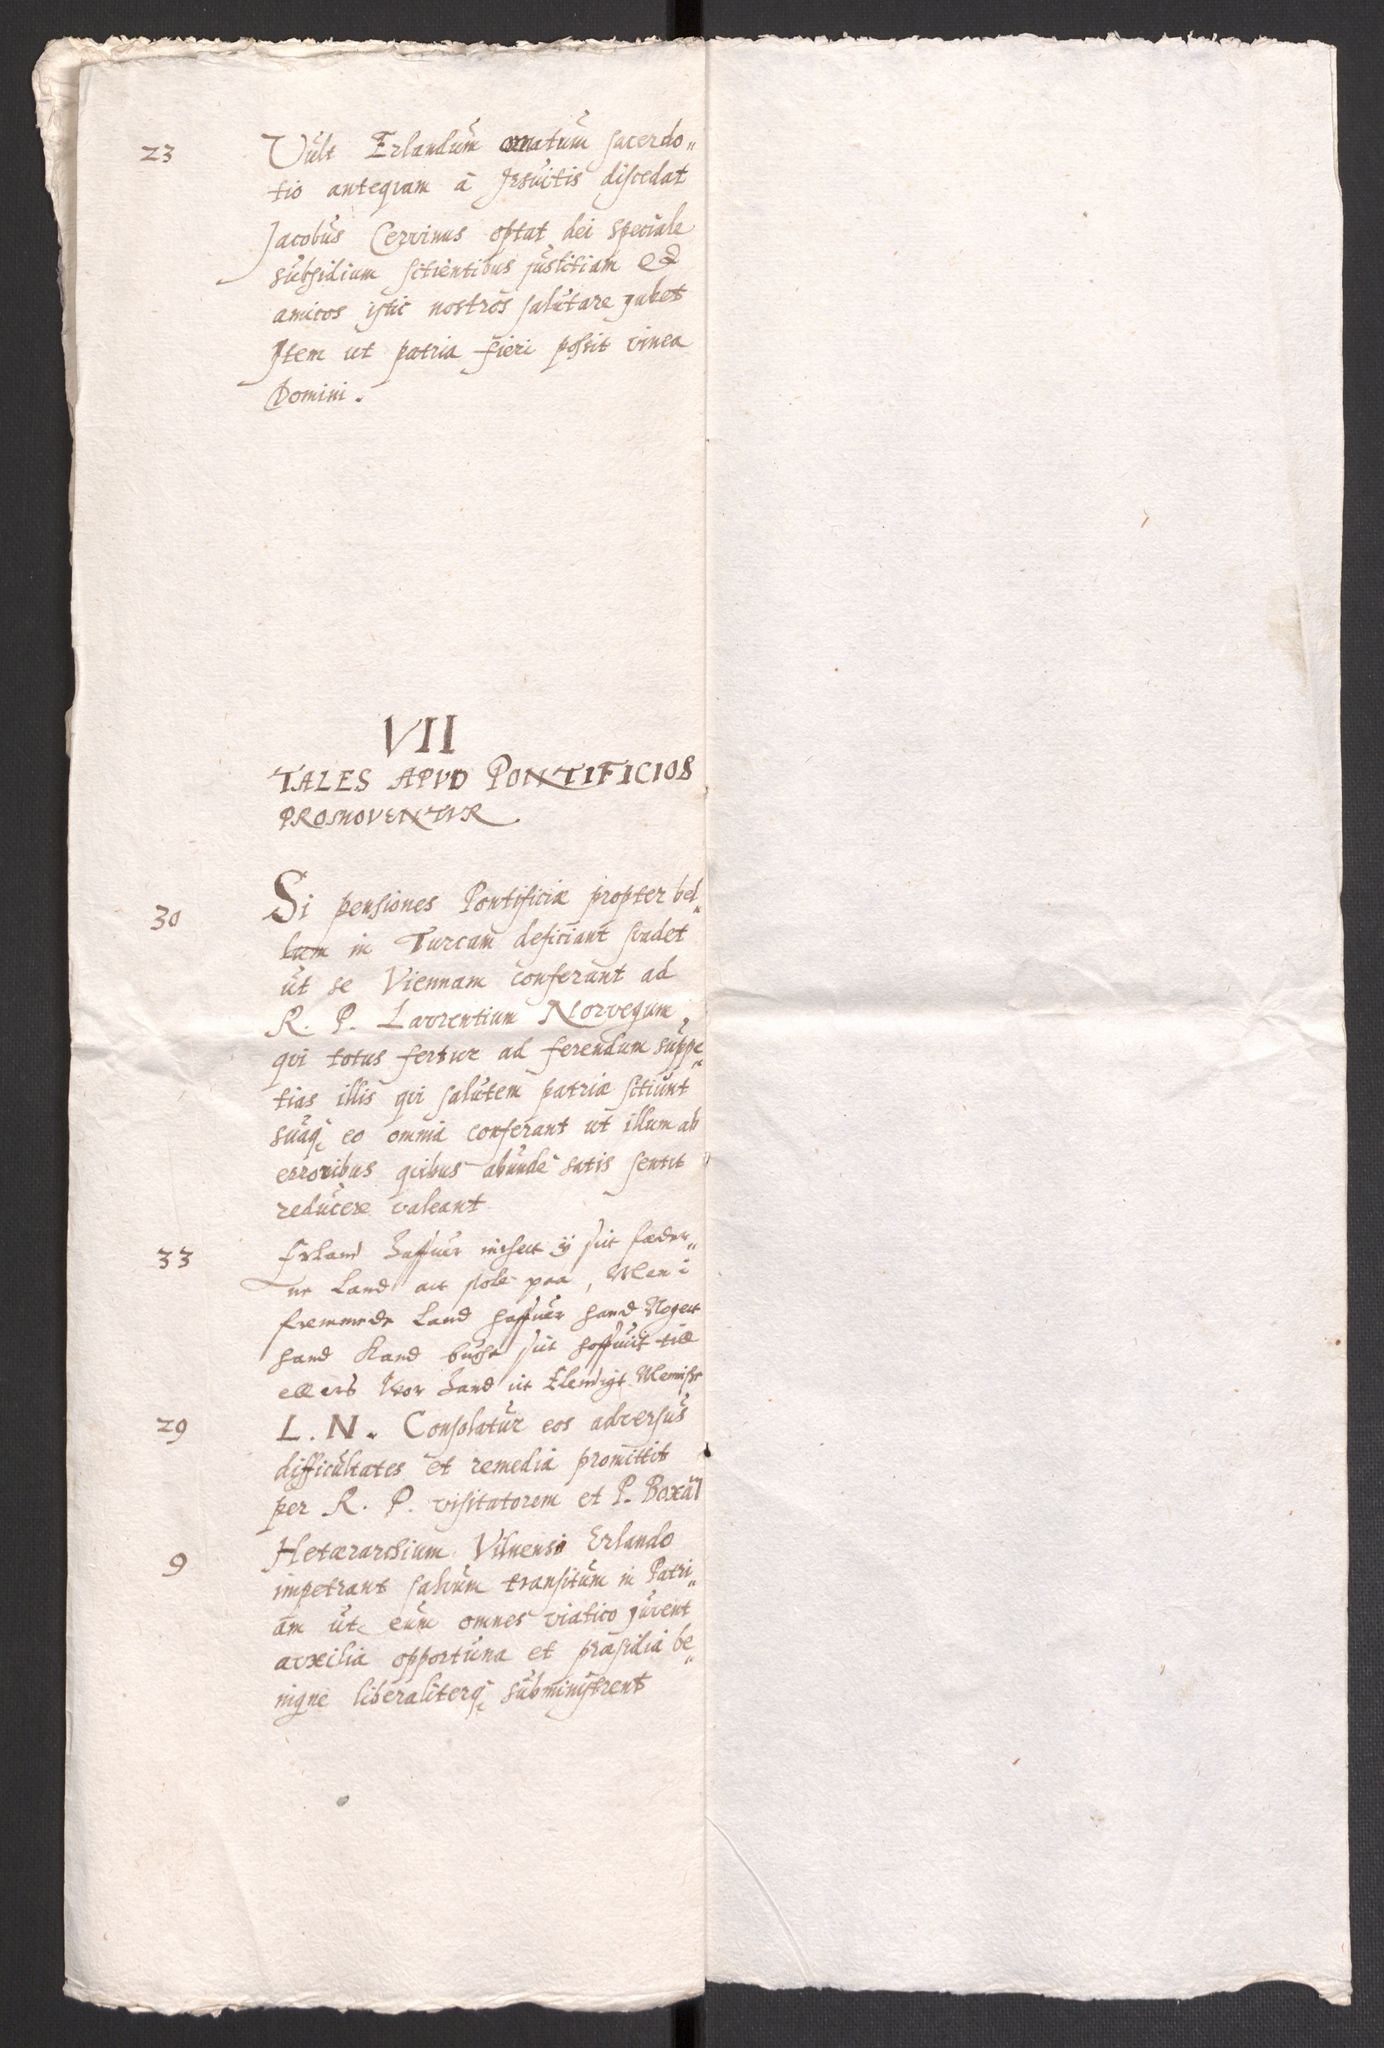 23 Vult Erlandum ornatum sacerdo„
tio anteqvam à Jesuitis discedat
Jacobus Cervinus optat dei speciale
subsidium sitientibus justitiam &
amicos istic nostros salutare jubet
Item ut patria fieri possit vinea
Domini.
VII
TALES APVD PONTIFICIOS
PROMOVENTVR
30 Si pensiones Pontificiæ propter bel„
lum in Turcam deficiant svadet
ut se Viennam conferant ad
R. P. Lavrentium Norvegum,
qvi totus fertur ad ferendum suppe„
tias illis qvi salutem patriæ sitiunt
suaq; eo omnia conferant ut illum ab
erroribus qvibus abunde satis sentit
reducere valeant
33 Erland haffuer inthet ij sit fæder„
ne Land att stole paa, Men i
fremmede Land haffuer hand Noget
hand Kand bughe sit hoffuit till
ellers vor hand it Elendigt Menishe
29 L. N. Consolatur eos adversus
difficultates et remedia promittit
per R. P. visitatorem et P. Boxal
9 Hetærarchium Vilnensi Erlando
impetrant salvum transitum in Patri„
am ut eum omnes viatico juvent
avxilia opportuna et præsidia be„
nigne liberaliterq; subministrent